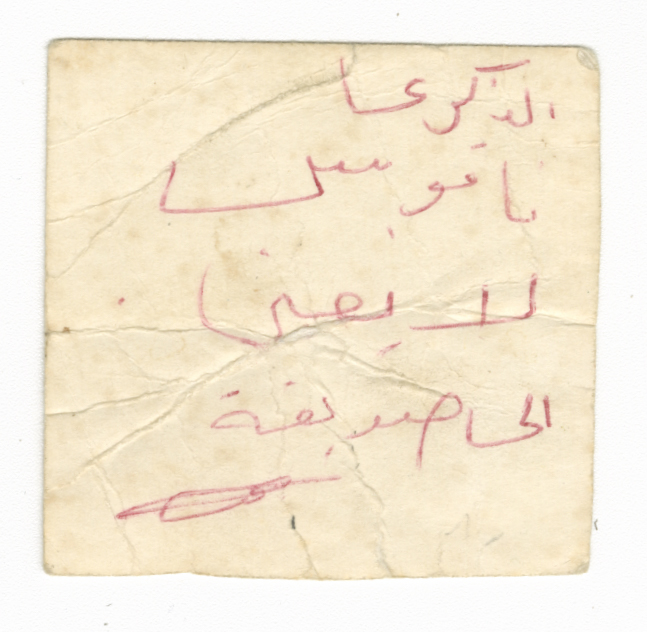 الذكرى
ناقوس
لا يفنى
الى صديقة